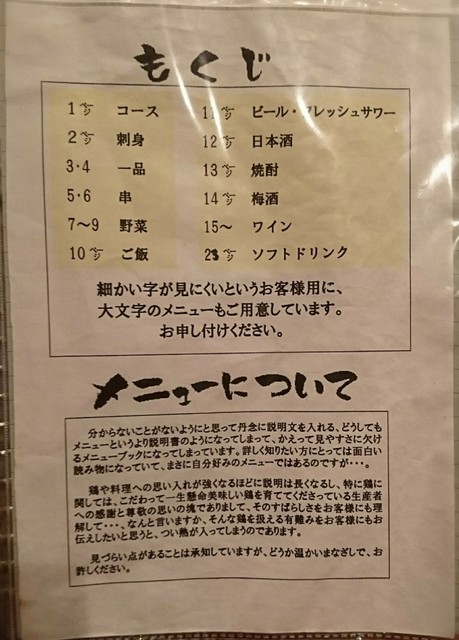 もくじ
1ページ コース
2ページ 刺身
3・4 一品
5・6 串
7～9 野菜
10ページ ご飯
11ページ ビール・フレッシュサワー
12ページ 日本酒
13ページ 焼酎
14ページ 梅酒
15～ ワイン
ページ ソフトドリンク
細かい字が見にくいというお客様用に、
大文字のメニューもご用意しています。
お申し付けください。
メニューについて
分からないことがないようにと思って丹念に説明文を入れる、どうしても
メニューというより説明書のようになってしまって、かえって見やすさに欠け
るメニューブックになってしまっています。詳しく知りたい方にとっては面白い
読み物になっていて、まさに自分好みのメニューではあるのですが・・・。
鶏や料理への思い入れが強くなるほどに説明は長くなるし、特に鶏に
関しては、こだわって一生懸命美味しい鶏を育ててくださっている生産者
への感謝と尊敬の思いの塊でありまして、そのすばらしさをお客様にも理
解して・・・、なんと言いますか、そんな鶏を扱える有難みをお客様にもお
伝えしたいと思うと、つい熱が入ってしまうのであります。
見づらい点があることは承知していますが、どうか温かいまなざしで、お
許しください。